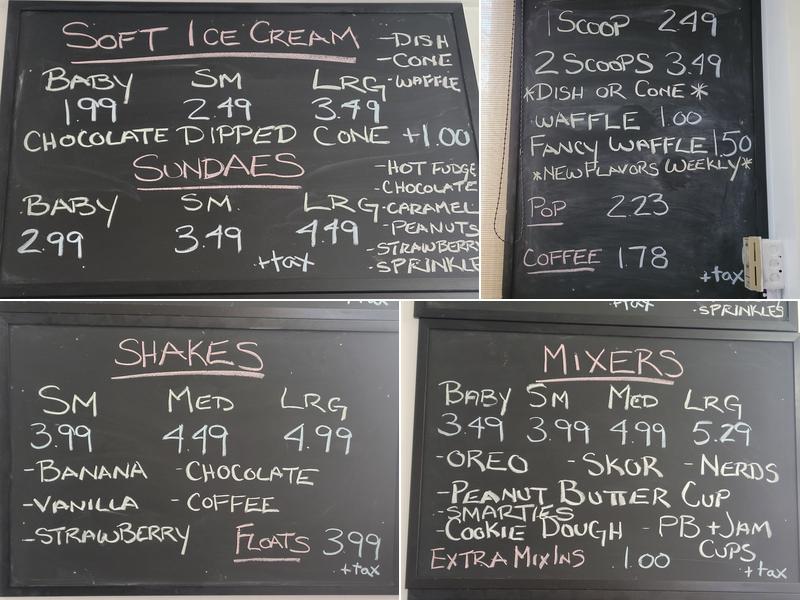 SOFT ICE CREAM
-DISH
-CONE
-WAFFLE
BABY SM LRG
1.99 2.49 3.49
CHOCOLATE DIPPED CONE +1.00
SUNDAES
-HOT FUDGE
-CHOCOLATE
-CARAMEL
-PEANUTS
-STRAWBERRY
-SPRINKLE
BABY SM. LRG
2.99 3.49 4.49
+tax
1 SCOOP 2.49
2 SCOOPS 3.49
*DISH OR CONE*
WAFFLE 1.00
FANCY WAFFLE 1.50
*NEW FLAVORS WEEKLY*
POP 2.23
COFFEE 1.78
+tax
SHAKES
SM MED LRG
3.99 4.49 4.99
-BANANA -CHOCOLATE
-VANILLA -COFFEE
-STRAWBERRY FLOATS 3.99
+tax
+tax
-SPRINKLES
MIXERS
BABY SM MED LRG
3.49 3.99 4.99 5.29
-OREO -SKOR -NERDS
-PEANUT BUTTER CUP
-SMARTIES
-COOKIE DOUGH -PB+JAM
CUPS
EXTRA MIXINS 1.00
+tax